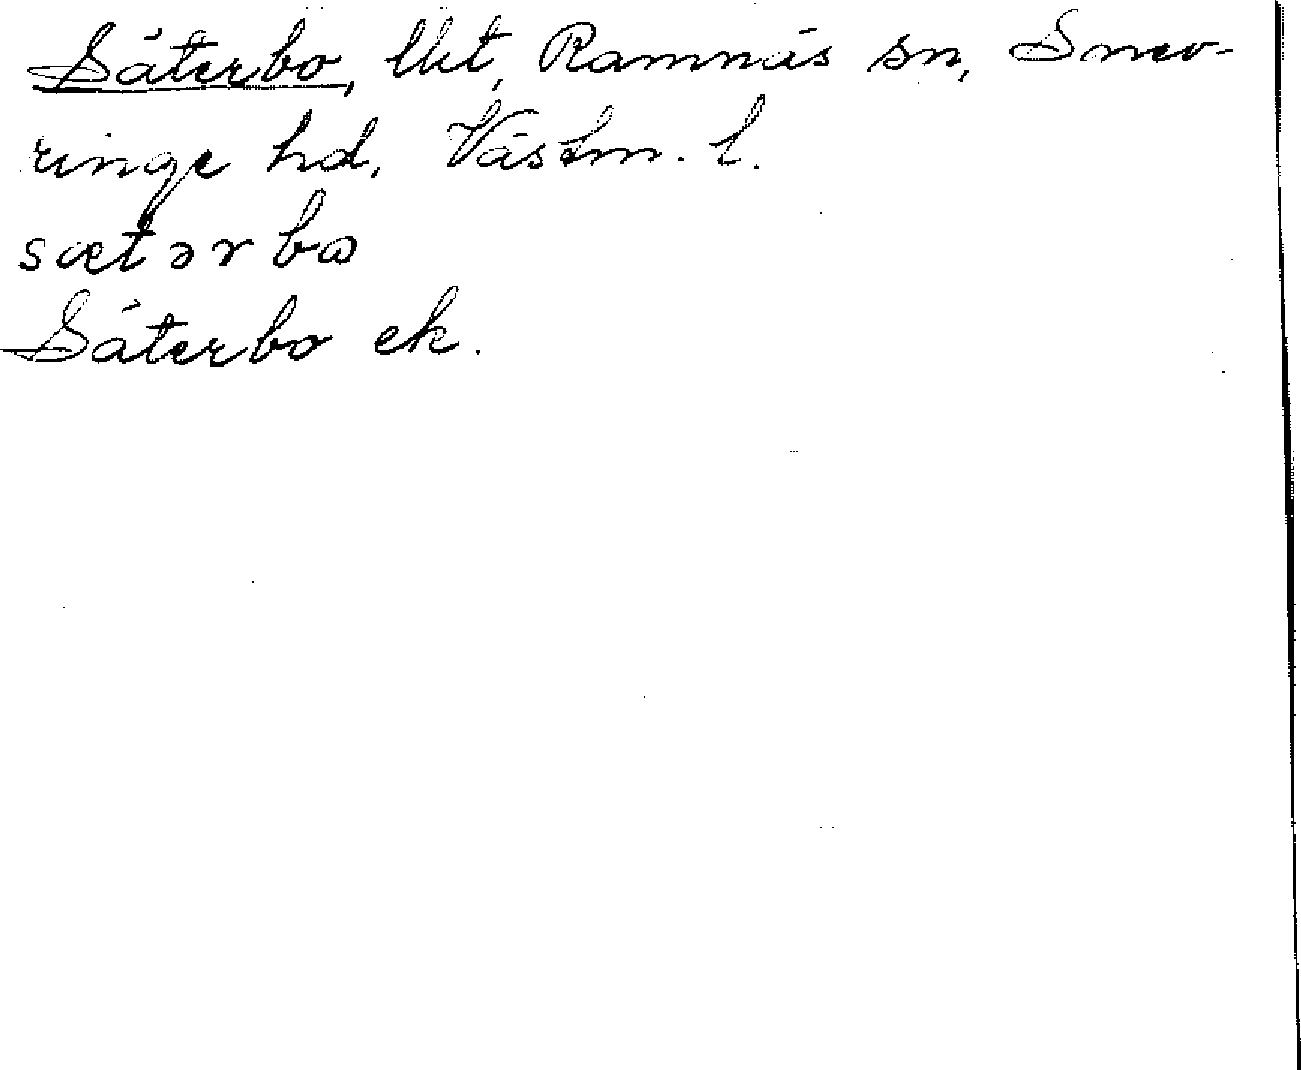 Säterbo, lkt, Ramnäs sn, Snev-
ringe hd, Västm. l.
sætərbω
Säterbo ek.